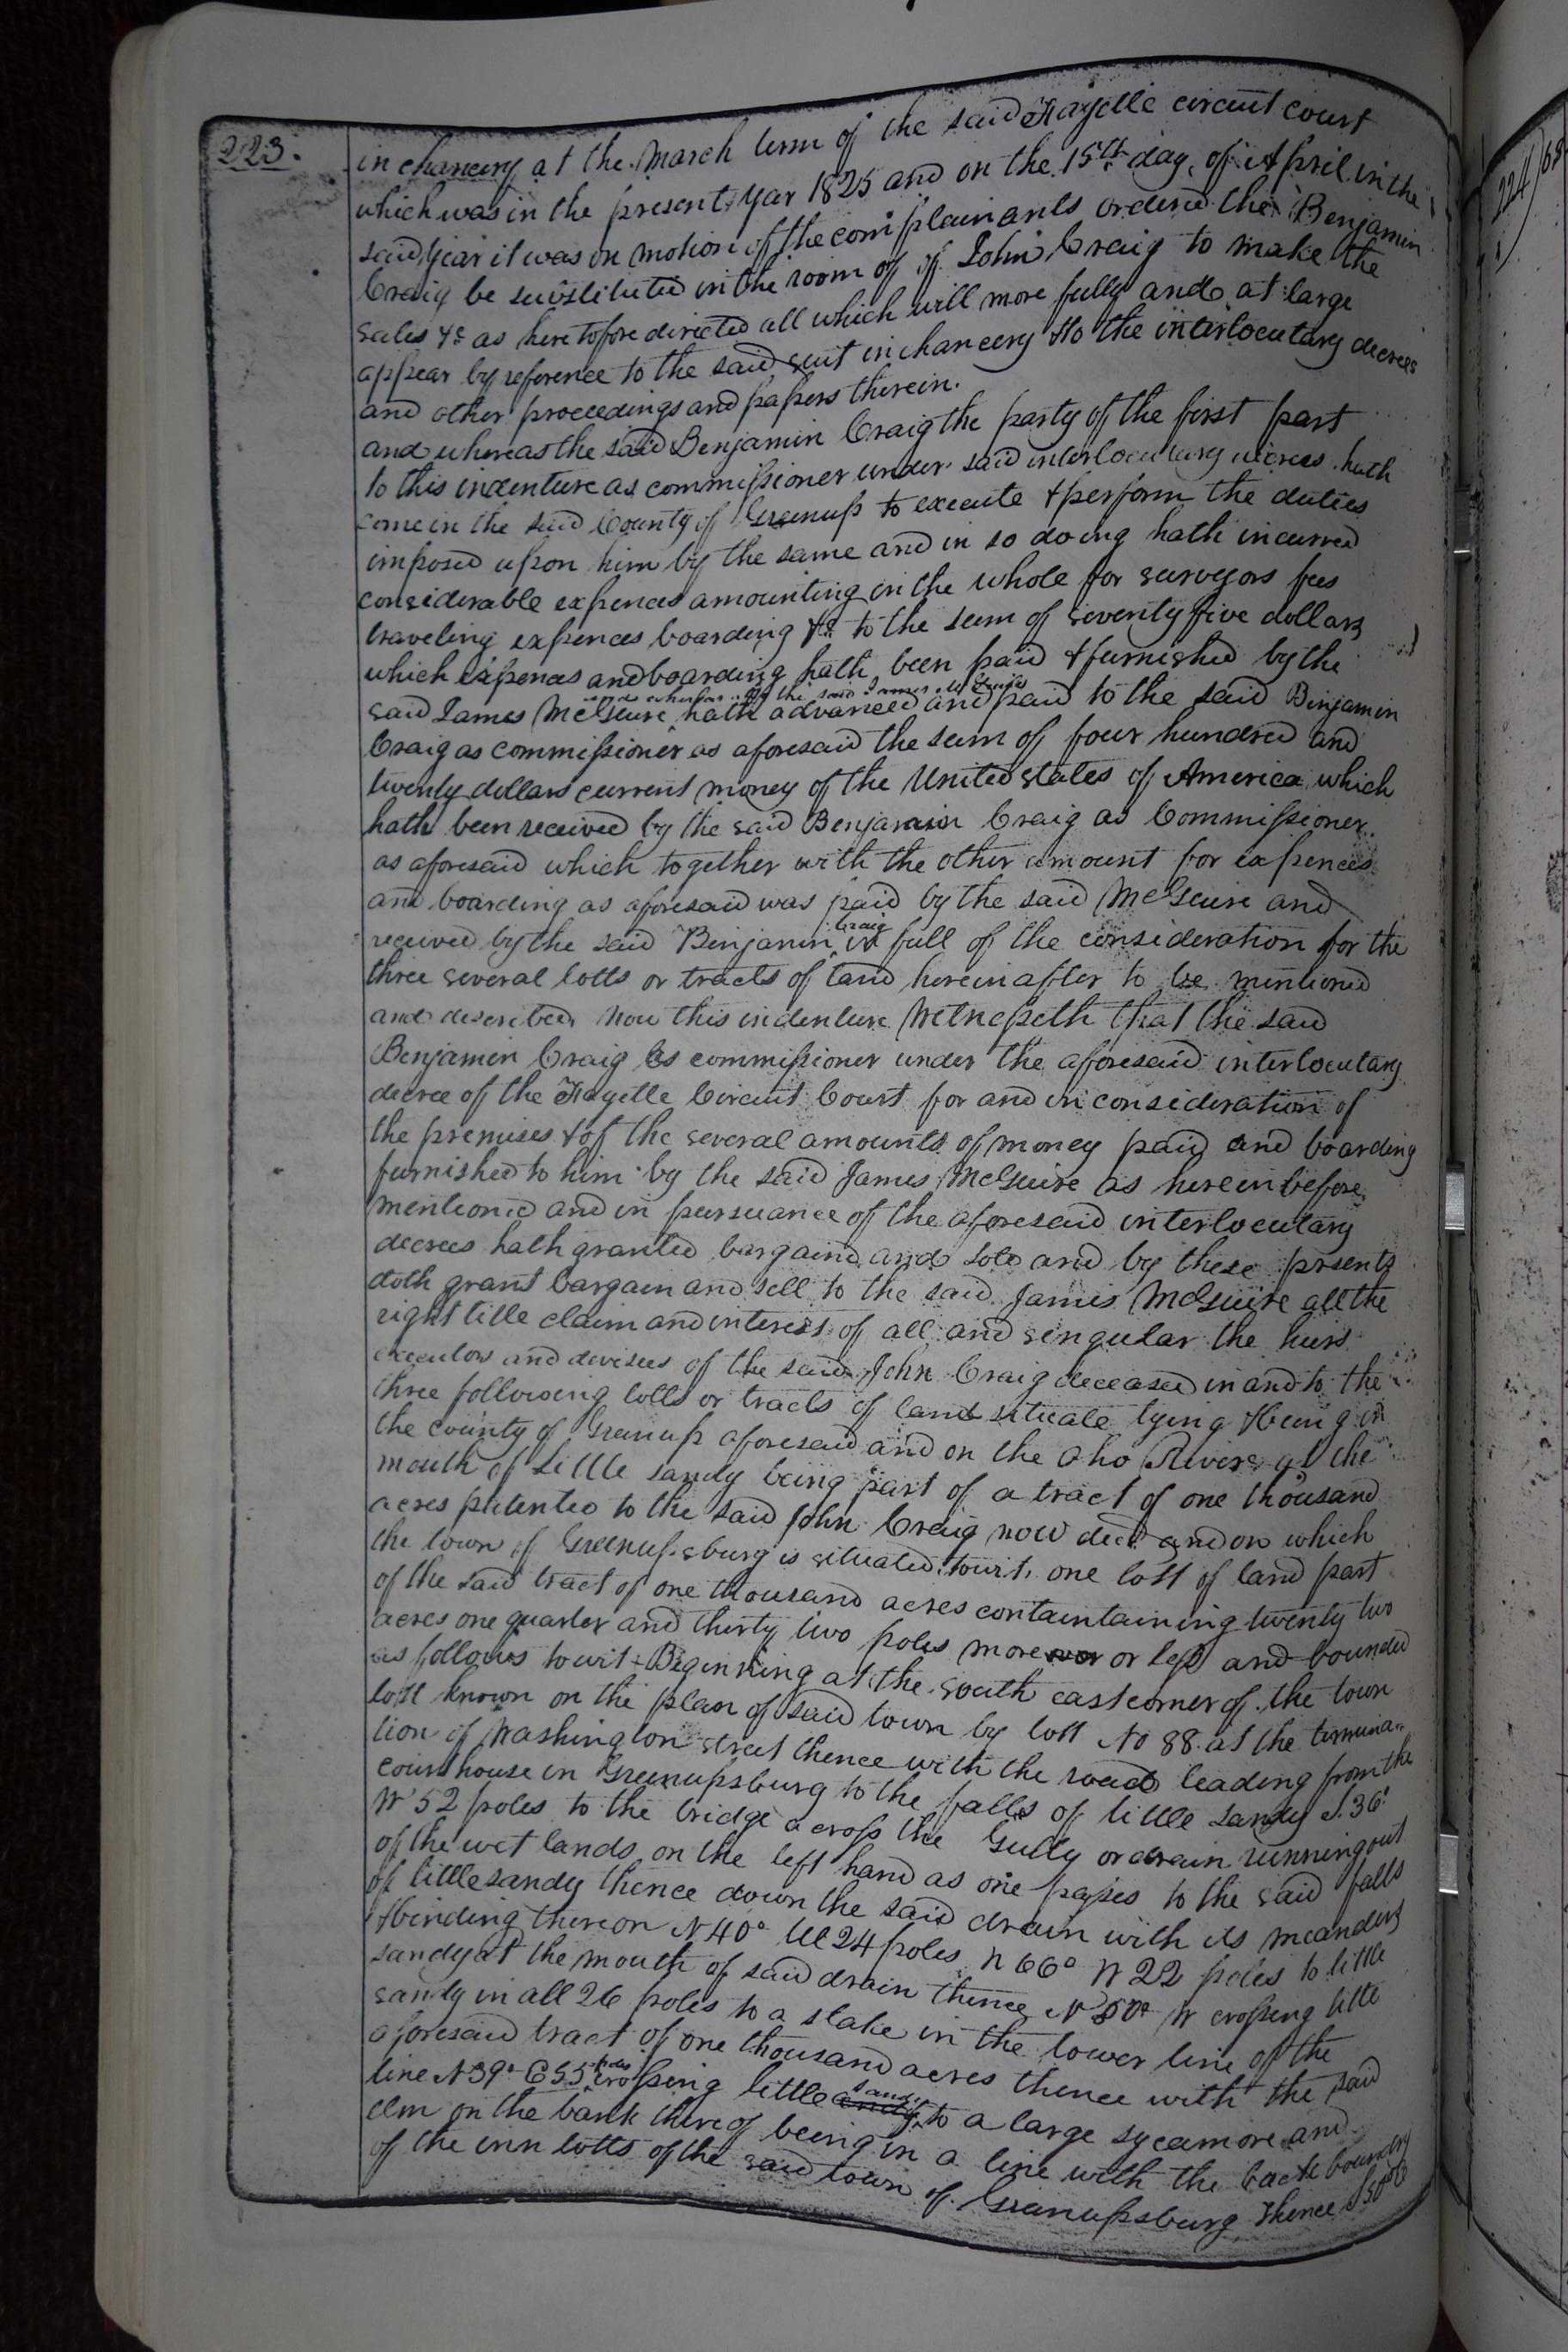 223.
in chancery at the March term of the said Fayelle circuit court
which was in the present year 1825 and on the 15th day of April in the
said year it was on motion of the complainants ordered that Benjamin
Craig be substituted in the room of of John Craig to make the
sales &c as heretofore directed all which will more fully and at large
appear by reference to the said suit in chancery & to the interlocutary decrees
and other proceedings and papers therein.
and whereas the said Benjamin Craig the party of the first part
to this indenture as commissioner under said interlocutary decrees hath
come in the said County of Greenup to execute & perform the duties
imposed upon him by the same and in so doing hath incurred
considerable expences amounting in the whole for surveyors fees
traveling expences boarding &c to the sum of seventy five dollars
which expences and boarding hath been paid & furnished by the
and whereas the said James McGuire
said James McGuire hath advanced and paid to the said Benjamin
Craig as commissioner as aforesaid the sum of four hundred and
twenty dollars current money of the United states of America which
hath been received by the said Benjamin Craig as Commissioner
as aforesaid which together with the other amount for expences
and boarding as aforesaid was paid by the said McGuire and
received by the said Benjamin Craig in full of the consideration for the
three several lotts or tracts of land hereinafter to be mentioned
and described, now this indenture Witnesseth that the said
Benjamin Craig as commissioner under the aforesaid interlocutary
decree of the Fayelle Circuit Court for and in consideration of
the premises & of the several amounts of money paid and boarding
furnished to him by the said James McGuire as herein before
mentioned and in pursuance of the aforesaid interlocutary
decrees hath granted bargaind and sold and by these prsents
doth grant bargain and sell to the said James McGuire all the
right title claim and interest of all and singular the heirs
executors and devisees of the said John Craig deceased in and to the
three following lotts or tracts of land situate lying & being in
the county of Greenup aforesaid and on the Oho River at the
mouth of Little sandy being part of a tract of one thousand
acres patented to the said John Craig now decd and on which
the town of Greenupsburg is situated, towit, one lott of land part
of the said tract of one thousand acres containtaining twenty two
acres one quarter and thirty two poles more or less and bounded
as follows towit - Beginning at the south east corner of the town
lott known on the plan of said town by lott No 88 at the termina-
tion of Washington street thence with the road leading from the
courthouse in Greenupsburg to the falls of little sandy S. 36°
W 52 poles to the bridge across the Gully or drain running out
of the wet lands on the left hand as one passes to the said falls
of little sandy thence down the said drain with its meanders
& binding thereon N 40° W 24 poles N 66° W 22 poles to little
sandy at the mouth of said drain thence N 50° W crossing little
sandy in all 26 poles to a stake in the lower line of the
aforesaid tract of one thousand acres thence with the said
line N 39° E 55 poles crossing little sandy to a large sycamore and
elm on the bank thereof being in a line with the back boundery
of the inn lotts of the said town of Greenupsburg Thence S 50° E
224